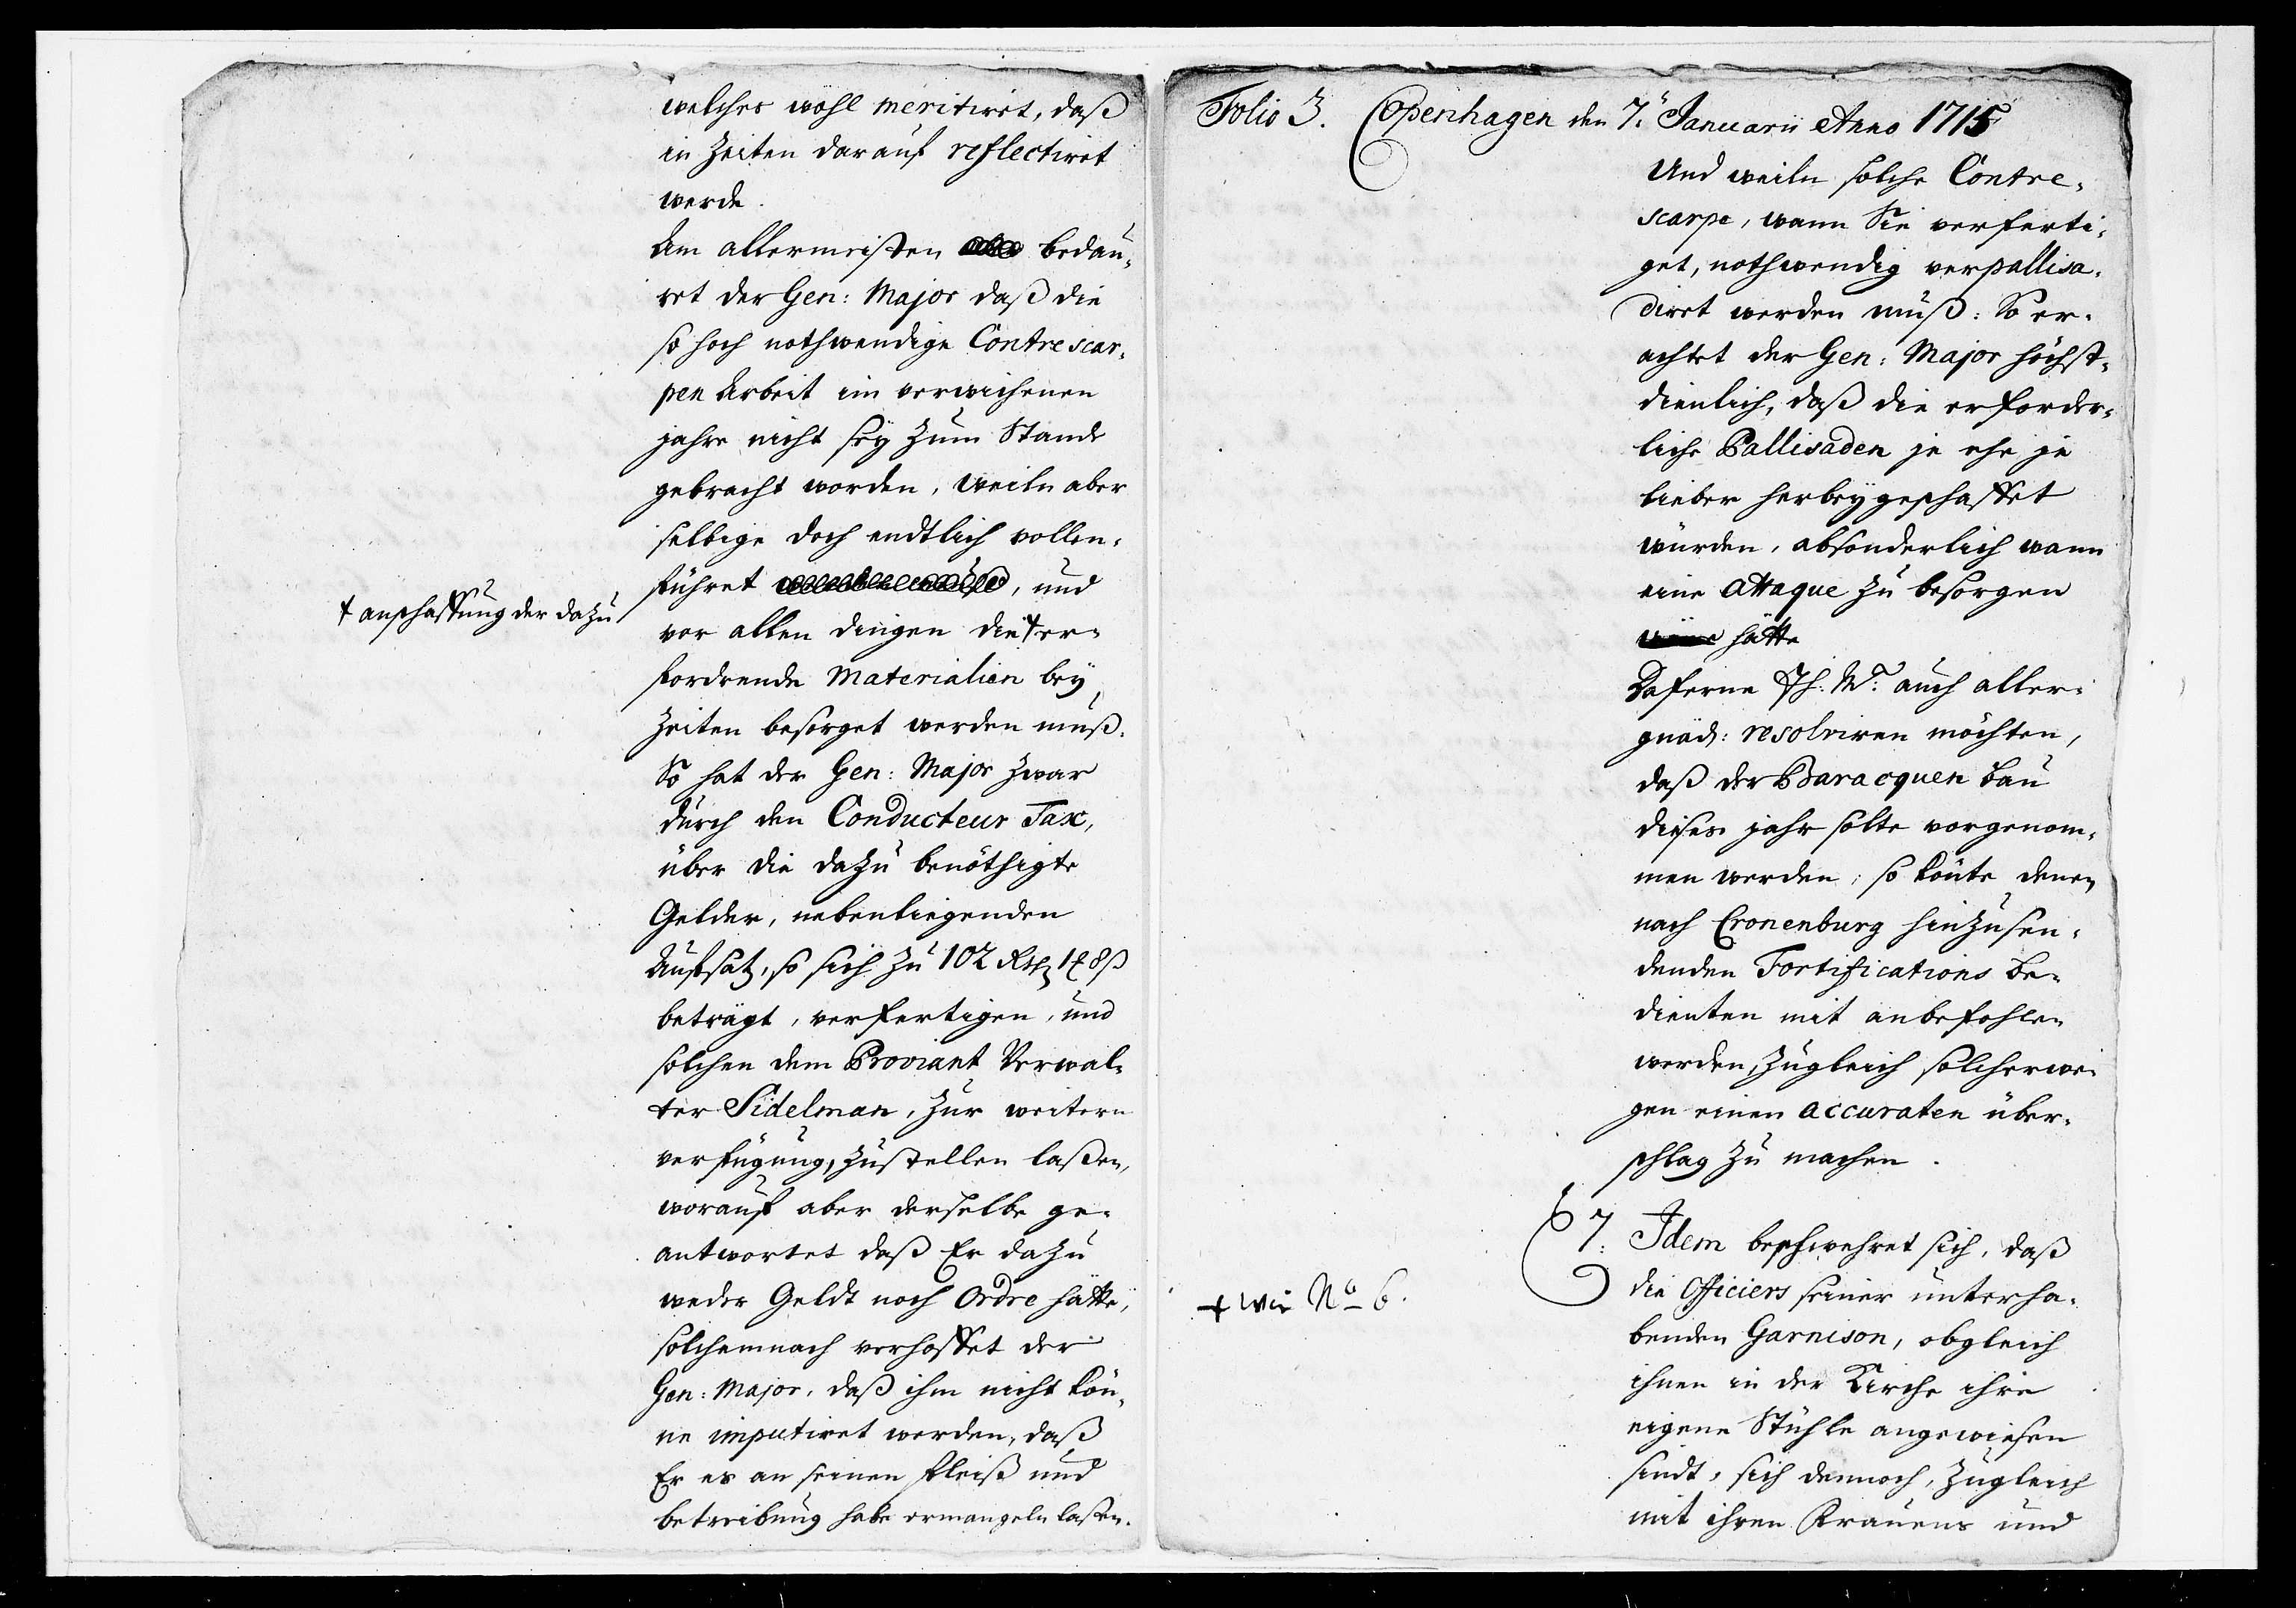 welches wohl meritiret, daß
in Zeiten darauf reflectiret
werde.
Am allermeisten bedau-
ret der Gen: Major daß die
so hoch nothwendige Contrescar-
pen Arbeit im verwichenen
jahre nicht sey zum Stande
gebracht worden, weiln aber
selbige doch endtlich vollen-
führet, und
+ anschaffung der dazu
vor allen dingen die + er-
fordrende Materialien bey
Zeiten besorget werden muß.
So hat der Gen: Major zwar
durch den Conducteur Tax,
über die dazu benöthigte
Gelder, nebenliegenden
Aufsatz, so sich zu 102 Rthl 1 ₰ 8 ß
beträgt, verfertigen, und
solchen dem Proviant Verwal-
ter Sidelman, zur weitern
verfügung, zustellen laßen,
worauf aber derselbe ge-
antwortet daß Er dazu
weder Geldt noch Ordre hätte,
solchemnach verhoffet der
Gen: Major, daß ihm nicht kön-
ne imputiret werden, daß
Er es an seinen fleiß und
betreibung habe ermangeln laßen.
Folio 3. Copenhagen den 7. Januarii Anno 1715
Und weiln solche Contre-
scarpe, wann Sie verferti-
get, nothwendig verpallisa-
diret werden muß: So er-
achtet der Gen: Major höchst-
dienlich, daß die erforder-
liche Pallisaden je ehe je
lieber herbeygeschaffet
würden, absonderlich wann
eine attaque zu besorgen
hätte
Daferne Ih: M: auch aller-
gnäd: resolviren möchten,
daß der Baracquen Bau
dieses jahr solte vorgenom-
men werden; so könte denen
nach Cronenburg hinzusen-
denden Fortifications Be-
dienten mit anbefohlen
werden, zugleich solcherwe-
gen einen accuraten über-
schlag zu machen.
7: Idem beschwehret sich, daß
die Officiers seiner unterha-
+ wie No 6.
benden Garnison, obgleich
ihnen in der Kirche ihre
eigene Stühle angewiesen
sindt, sich dennoch, zugleich
mit ihren Frauens und